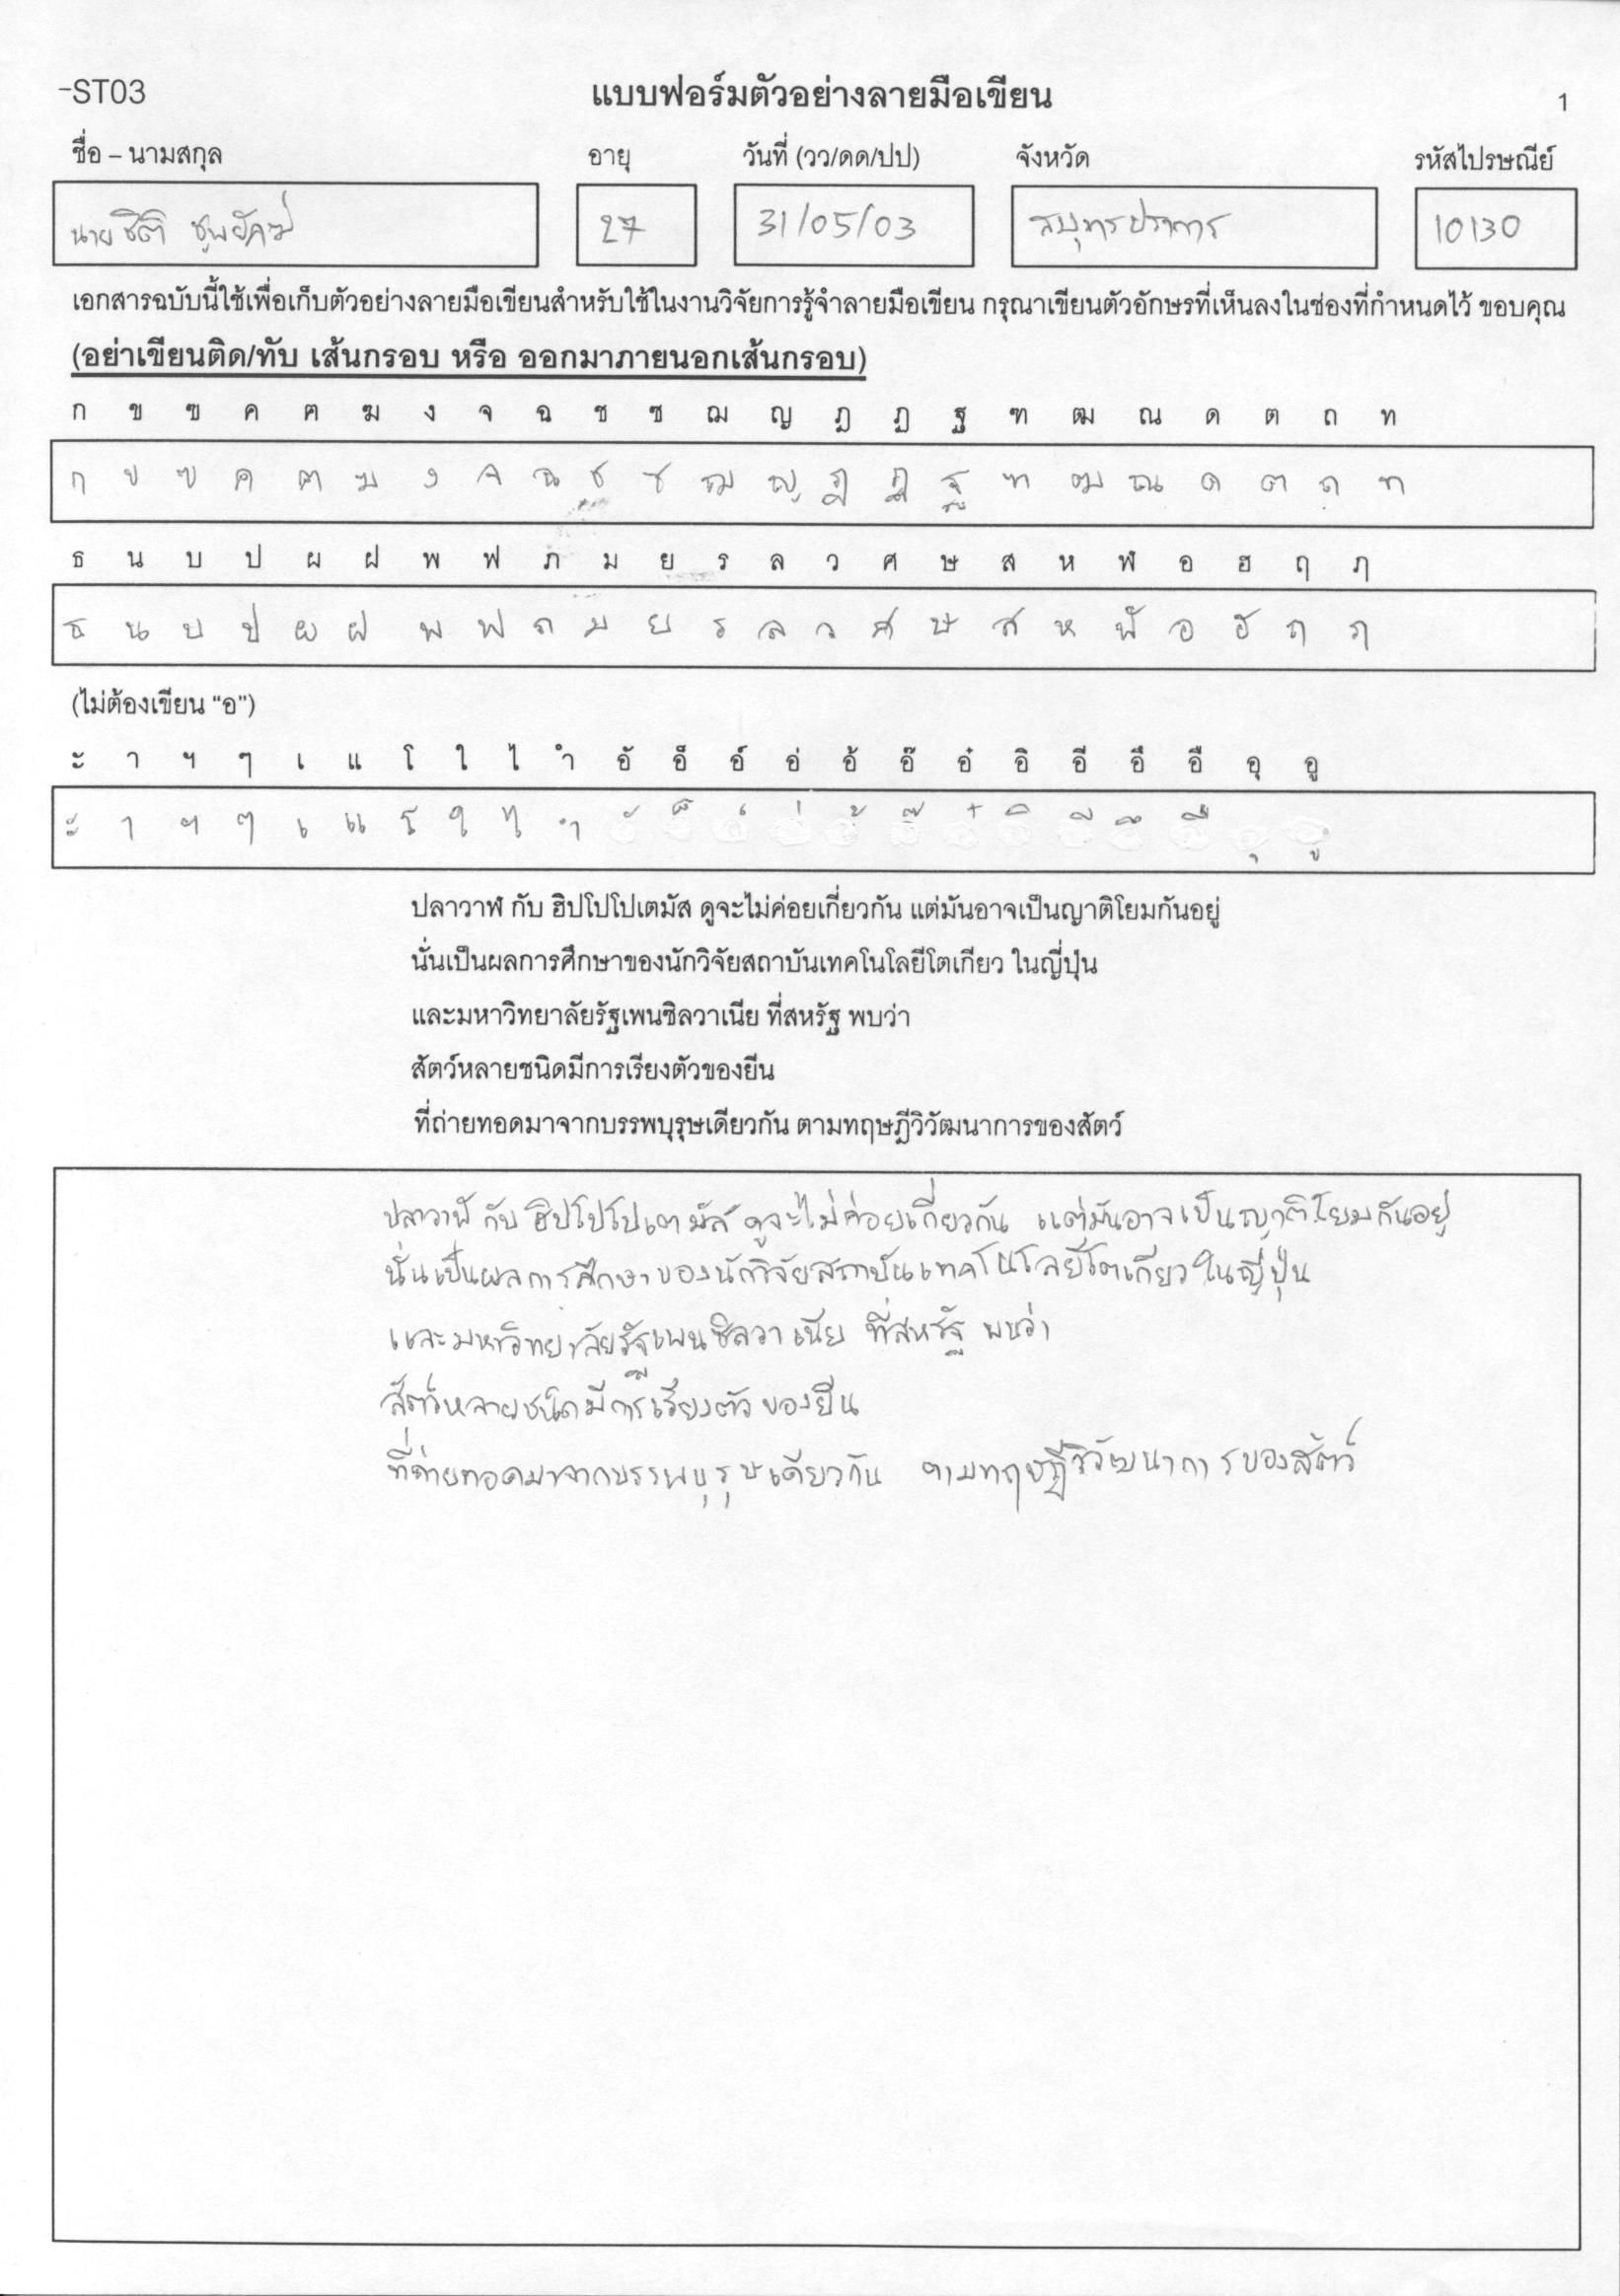 -ST03 แบบฟอร์มตัวอย่างลายมือเขียน 1
ชื่อ – นามสกุล อายุ วันที่ (วว/ดด/ปป) จังหวัด รหัสไปรษณีย์
นาย 27 31/05/03 สมุทรปราการ 10130
เอกสารฉบับนี้ใช้เพื่อเก็บตัวอย่างลายมือเขียนสำหรับใช้ในงานวิจัยการรู้จำลายมือเขียน กรุณาเขียนตัวอักษรที่เห็นลงในช่องที่กำหนดไว้ ขอบคุณ
(อย่าเขียนติด/ทับ เส้นกรอบ หรือ ออกมาภายนอกเส้นกรอบ)
ก ข ฃ ค ฅ ฆ ง จ ฉ ช ซ ฌ ญ ฎ ฏ ฐ ฑ ฒ ณ ด ต ถ ท
ก ข ฃ ค ฅ ฆ ง จ ฉ ช ซ ฌ ญ ฎ ฏ ฐ ฑ ฒ ณ ด ต ถ ท
ธ น บ ป ผ ฝ พ ฟ ภ ม ย ร ล ว ศ ษ ส ห ฬ อ ฮ ฤ ฦ
ธ น บ ป ผ ฝ พ ฟ ภ ม ย ร ล ว ศ ษ ส ห ฬ อ ฮ ฤ ฦ
(ไม่ต้องเขียน "อ")
ะ า ฯ ๆ เ แ โ ใ ไ ำ อั อ็ อ์ อ่ อ้ อ๊ อ๋ อิ อี อึ อื อุ อู
ะ า ฯ ๆ เ แ โ ใ ไ ำ ั ็ ์ ่ ้ ๊ ๋ ิ ี ึ ื ุ ู
ปลาวาฬ กับ ฮิปโปโปเตมัส ดูจะไม่ค่อยเกี่ยวกัน แต่มันอาจเป็นญาติโยมกันอยู่
นั่นเป็นผลการศึกษาของนักวิจัยสถาบันเทคโนโลยีโตเกียว ในญี่ปุ่น
และมหาวิทยาลัยรัฐเพนซิลวาเนีย ที่สหรัฐ พบว่า
สัตว์หลายชนิดมีการเรียงตัวของยีน
ที่ถ่ายทอดมาจากบรรพบุรุษเดียวกัน ตามทฤษฎีวิวัฒนาการของสัตว์
ปลาวาฬ กับ ฮิปโปโปเตมัส ดูจะไม่ค่อยเกี่ยวกัน แต่มันอาจเป็นญาติโยมกันอยู่
นั่นเป็นผลการศึกษาของนักวิจัยสถาบันเทคโนโลยีโตเกียว ในญี่ปุ่น
และมหาวิทยาลัยรัฐเพนซิลวาเนีย ที่สหรัฐ พบว่า
สัตว์หลายชนิดมีการเรียงตัวของยีน
ที่ถ่ายทอดมาจากบรรพบุรุษเดียวกัน ตามทฤษฎีวิวัฒนาการของสัตว์